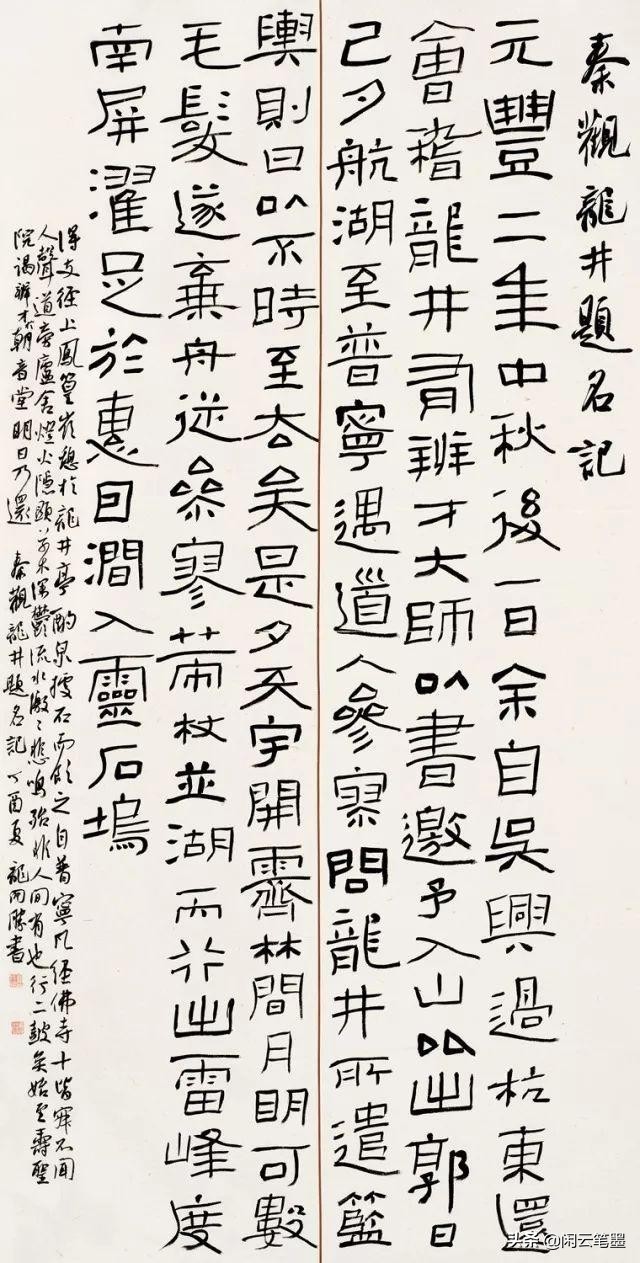 秦觀龍井題名記
元豐二年中秋後一日余自吳興過杭東還
會稽龍井有辨才大師以書邀予入山比出郭日
已夕航湖至普寧遇道人參寥問龍井所遣籃
輿則曰以不時至去矣是夕天宇開霽林間月明可數
毛髮遂棄舟從參寥策杖並湖而行出雷峰度
南屏濯足於惠因澗入靈石塢
得支徑上鳳篁嶺憩於龍井亭酌泉據石而飲之自普寧凡經佛寺十皆寂不聞
人聲道旁廬舍燈火隱顯草木深鬱流水激〻悲鳴殆非人間有也行二鼓矣始至壽聖
院謁辨才朝音堂明日乃還 秦觀龍井題名記 丁酉夏 龍開勝書
头条@闲云笔墨